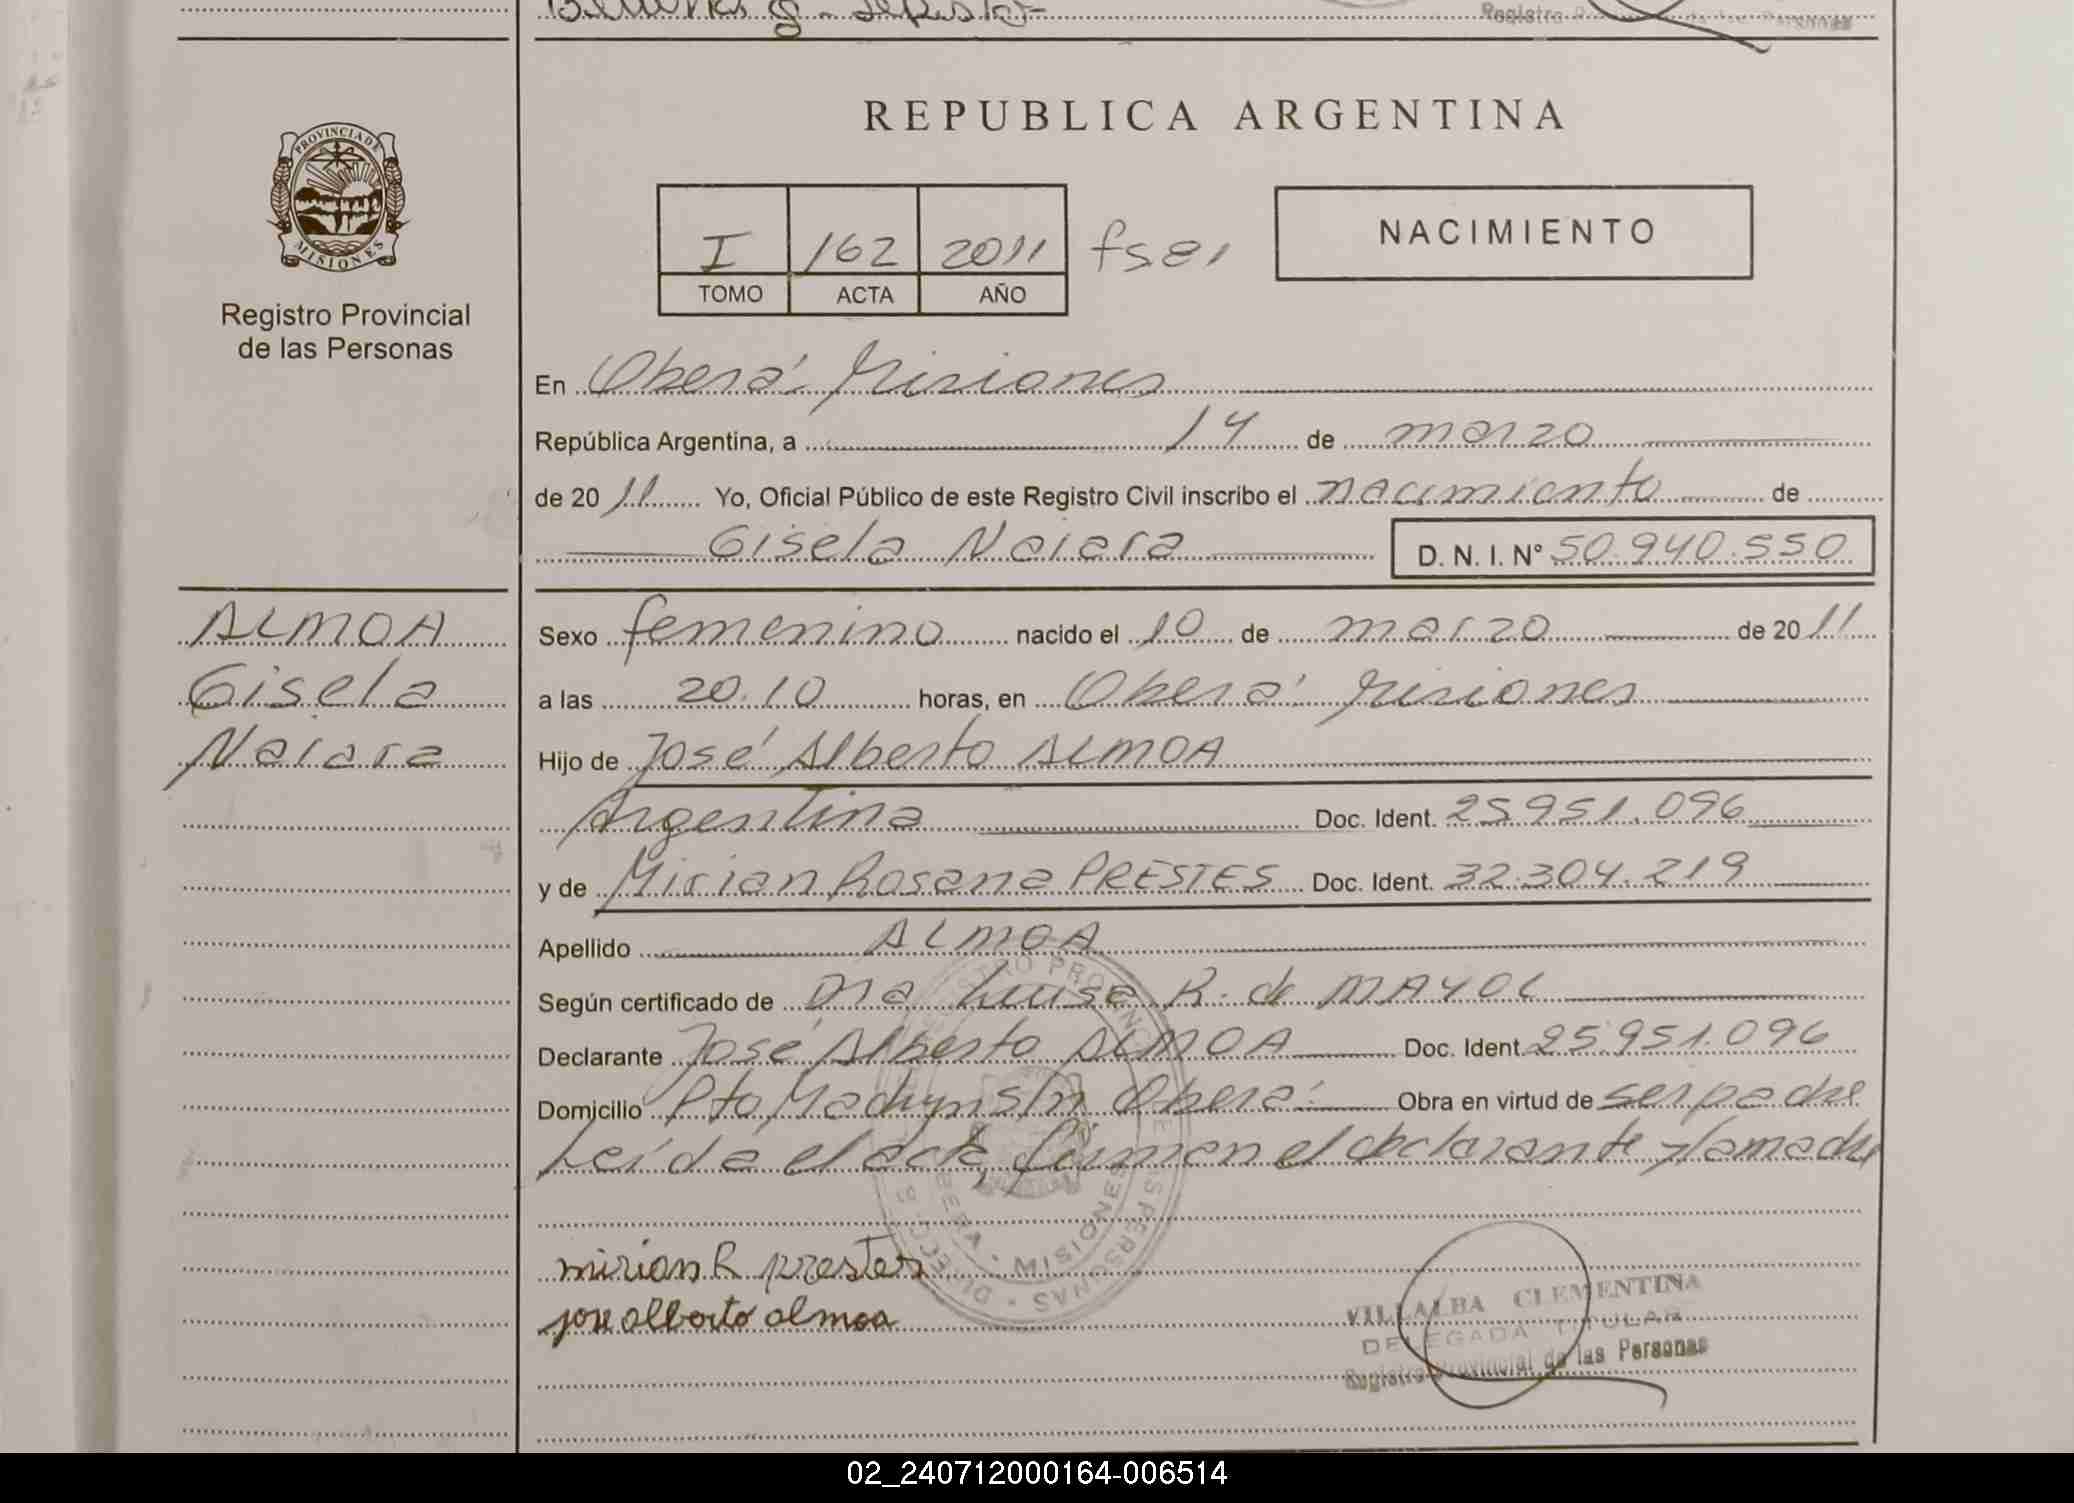 REPUBLICA ARGENTINA
PROVINCIA DE
MISIONES
Registro Provincial
de las Personas
I 162 2011 fs 81
TOMO ACTA AÑO
NACIMIENTO
En Oberá Misiones
República Argentina, a 14 de marzo
de 2011 Yo, Oficial Público de este Registro Civil inscribo el nacimiento de
Gisela Naiara D. N. I. Nº 50.940.550
ALMOA
Gisela
Naiara
Sexo femenino nacido el 10 de marzo de 2011
a las 20.10 horas, en Oberá Misiones
Hijo de José Alberto ALMOA
Argentina Doc. Ident. 25.951.096
y de Mirian Rosana PRESTES Doc. Ident. 32.304.219
Apellido ALMOA
Según certificado de Dra Luisa R. de MAYOL
Declarante José Alberto ALMOA Doc. Ident. 25.951.096
Domicilio Pto Madryn S/n Oberá Obra en virtud de ser padre
Leída el acta, firman el declarante y la madre
mirian R prestes
jose alberto almoa
VILLALBA CLEMENTINA
DELEGADA TITULAR
Registro Provincial de las Personas
02_240712000164-006514